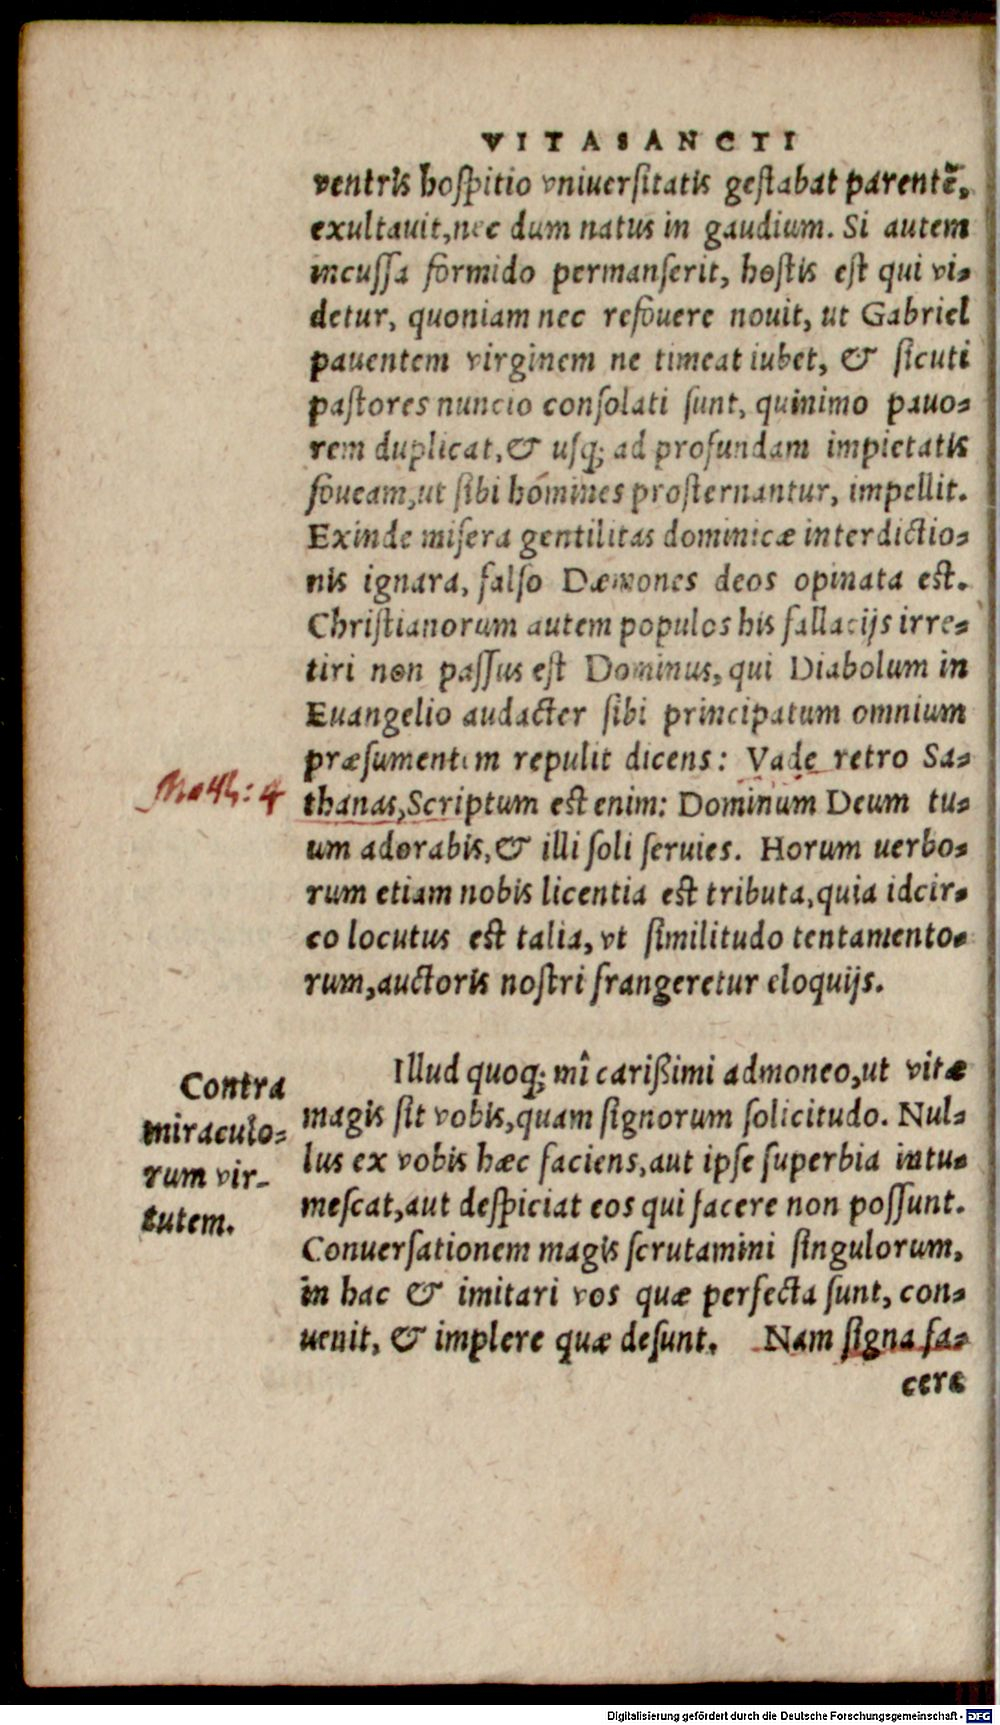 VITA SANCTI
ventris hospitio vniuersitatis gestabat parentē,
exultauit, nec dum natus in gaudium. Si autem
incussa formido permanserit, hostis est qui vi-
detur, quoniam nec refouere nouit, ut Gabriel
pauentem virginem ne timeat iubet, & sicuti
pastores nuncio consolati sunt, quinimo pauo-
rem duplicat, & usq; ad profundam impietatis
foueam, ut sibi homines prosternantur, impellit.
Exinde misera gentilitas dominicæ interdictio-
nis ignara, falso Dæmones deos opinata est.
Christianorum autem populos his fallacijs irre-
tiri non passus est Dominus, qui Diabolum in
Euangelio audacter sibi principatum omnium
præsumentem repulit dicens: Vade retro Sa-
Math: 4
thanas, Scriptum est enim: Dominum Deum tu-
um adorabis, & illi soli seruies. Horum uerbo-
rum etiam nobis licentia est tributa, quia idcir-
co locutus est talia, vt similitudo tentamento-
rum, auctoris nostri frangeretur eloquijs.
Illud quoq; mî carißimi admoneo, ut vitæ
magis sit vobis, quam signorum solicitudo. Nul-
lus ex vobis hæc faciens, aut ipse superbia intu-
mescat, aut despiciat eos qui facere non possunt.
Conuersationem magis scrutamini singulorum,
in hac & imitari vos quæ perfecta sunt, con-
uenit, & implere quæ desunt. Nam signa fa-
cere
Contra
miraculo-
rum vir-
tutem.
Digitalisierung gefördert durch die Deutsche Forschungsgemeinschaft - DFG